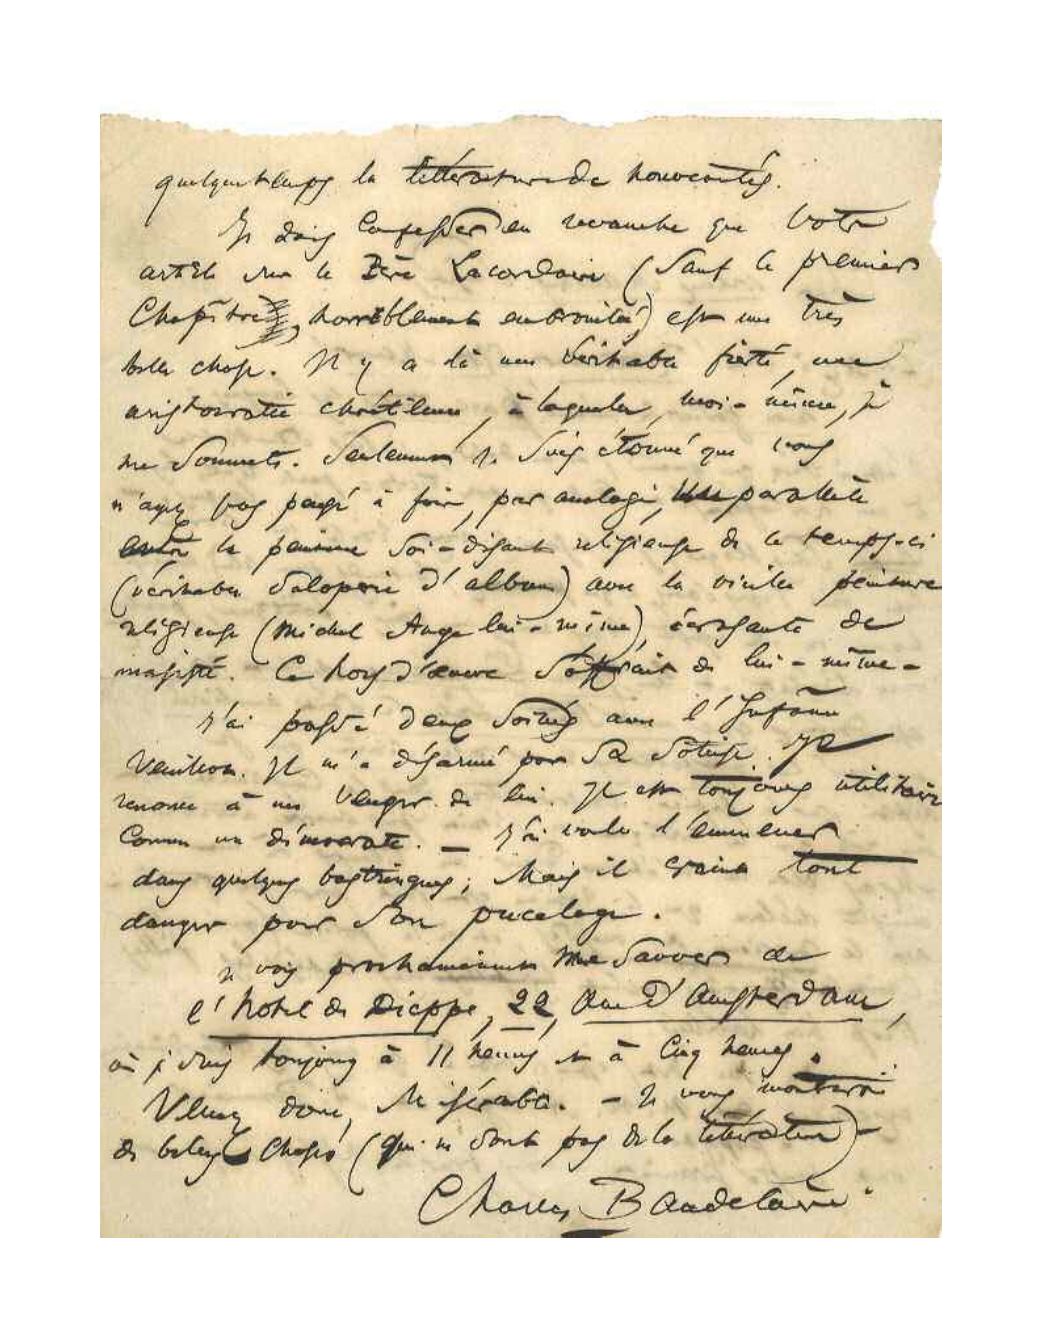 quelque temps la littérature de nouveautés.
Je dois confesser en revanche que votre
article sur le Père Lacordaire (sauf le premier
chapitre, horriblement embrouillé) est une très
belle chose. Il y a là une véritable fierté, une
aristocratie chrétienne, à laquelle, moi-même, je
me soumets. Seulement je suis étonné que vous
n'ayez pas pensé à faire, par analogie, un parallèle
entre la peinture soi-disant religieuse de ce temps-ci
(véritable saloperie d'album) avec la vieille peinture
religieuse (Michel Ange lui-même), écrasante de
majesté. Ce hors d'œuvre s'offrait de lui-même –
J'ai passé deux soirées avec l'infâme
Veuillot. Il m'a désarmé par sa sottise. Je
renonce à me venger de lui. Il est toujours utilitaire
comme un démocrate. — J'ai voulu l'emmener
dans quelques bastringues ; mais il craint tout
danger pour son pucelage.
Je vais prochainement me sauver de
l'hôtel de Dieppe, 22, rue d'Amsterdam,
où je suis toujours à 11 heures et à cinq heures.
Venez donc, misérable. – Je vous montrerai
de belles choses (qui ne sont pas de la littérature) –
Charles Baudelaire.